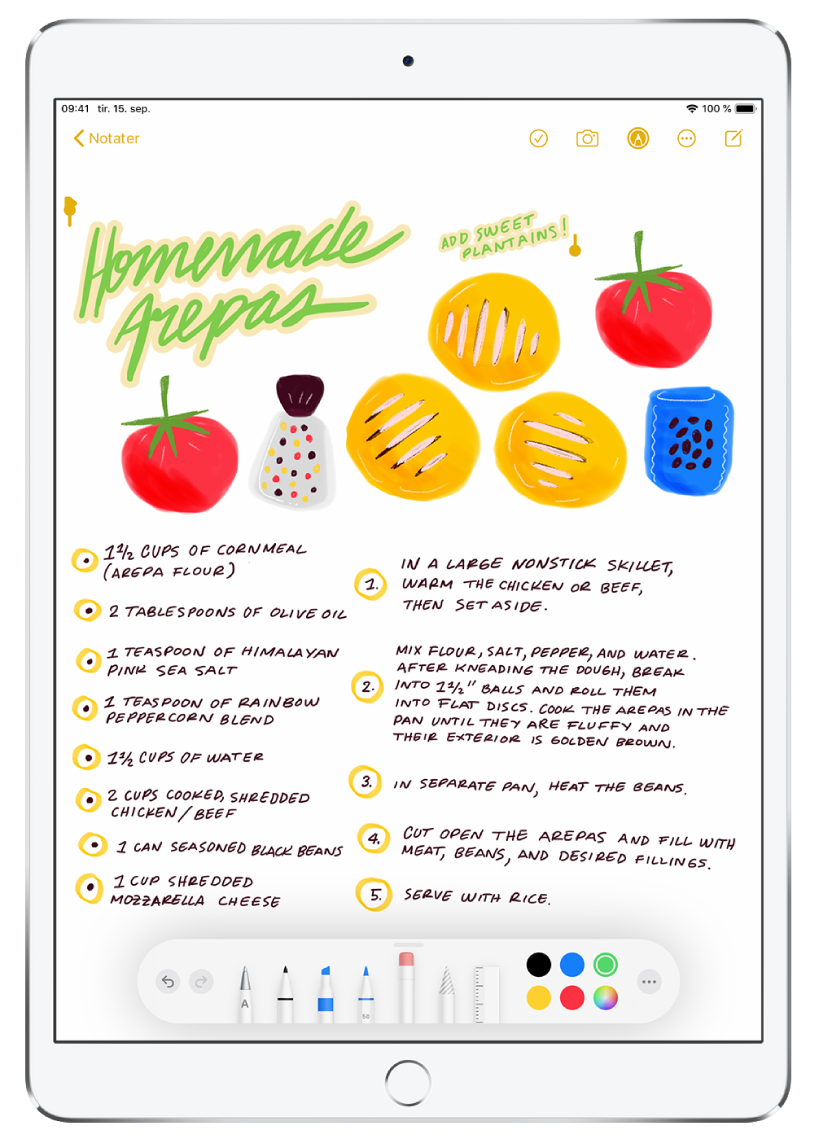 09:41 tir. 15. sep.
100 %
Notater
Homemade
Arepas
ADD SWEET
PLANTAINS!
1 1/2 CUPS OF CORNMEAL
(AREPA FLOUR)
2 TABLESPOONS OF OLIVE OIL
1 TEASPOON OF HIMALAYAN
PINK SEA SALT
1 TEASPOON OF RAINBOW
PEPPERCORN BLEND
1 1/2 CUPS OF WATER
2 CUPS COOKED, SHREDDED
CHICKEN/BEEF
1 CAN SEASONED BLACK BEANS
1 CUP SHREDDED
MOZZARELLA CHEESE
1. IN A LARGE NONSTICK SKILLET,
WARM THE CHICKEN OR BEEF,
THEN SET ASIDE.
2. MIX FLOUR, SALT, PEPPER, AND WATER.
AFTER KNEADING THE DOUGH, BREAK
INTO 1 1/2" BALLS AND ROLL THEM
INTO FLAT DISCS. COOK THE AREPAS IN THE
PAN UNTIL THEY ARE FLUFFY AND
THEIR EXTERIOR IS GOLDEN BROWN.
3. IN SEPARATE PAN, HEAT THE BEANS.
4. CUT OPEN THE AREPAS AND FILL WITH
MEAT, BEANS, AND DESIRED FILLINGS.
5. SERVE WITH RICE.
A
50